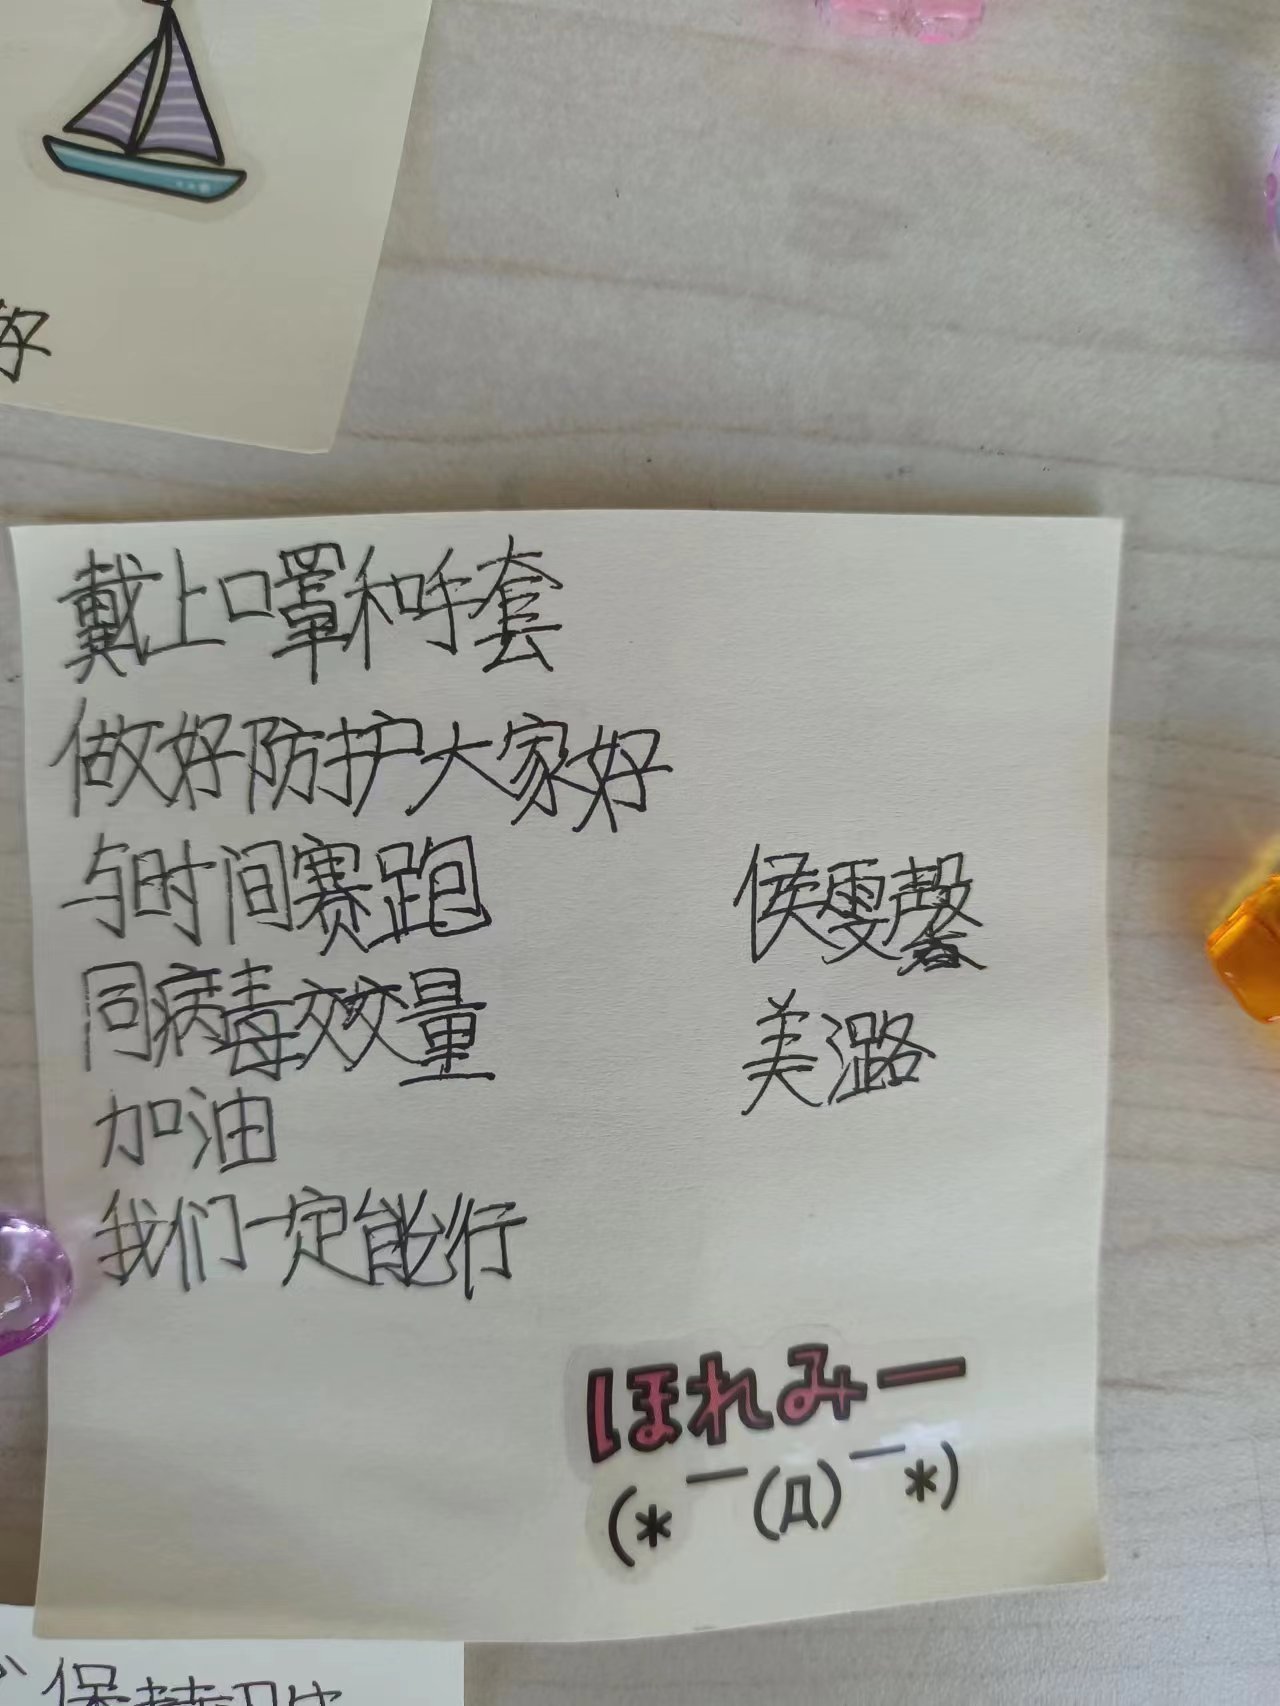 戴上口罩和手套
做好防护大家好
与时间赛跑
同病毒效效量
加油
我们一定能行
侯雯馨
美潞
ほれみー
(*￣(Д)￣*)
保持卫生